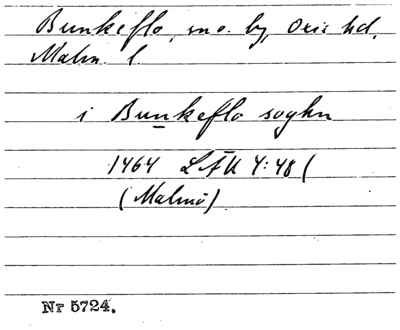 Bunkeflo, sn o. by, Oxie hd,
Malm. l.
i Bunkeflo soghn
1464 LÄU 4:48 (
(Malmö)
Nr 5724.